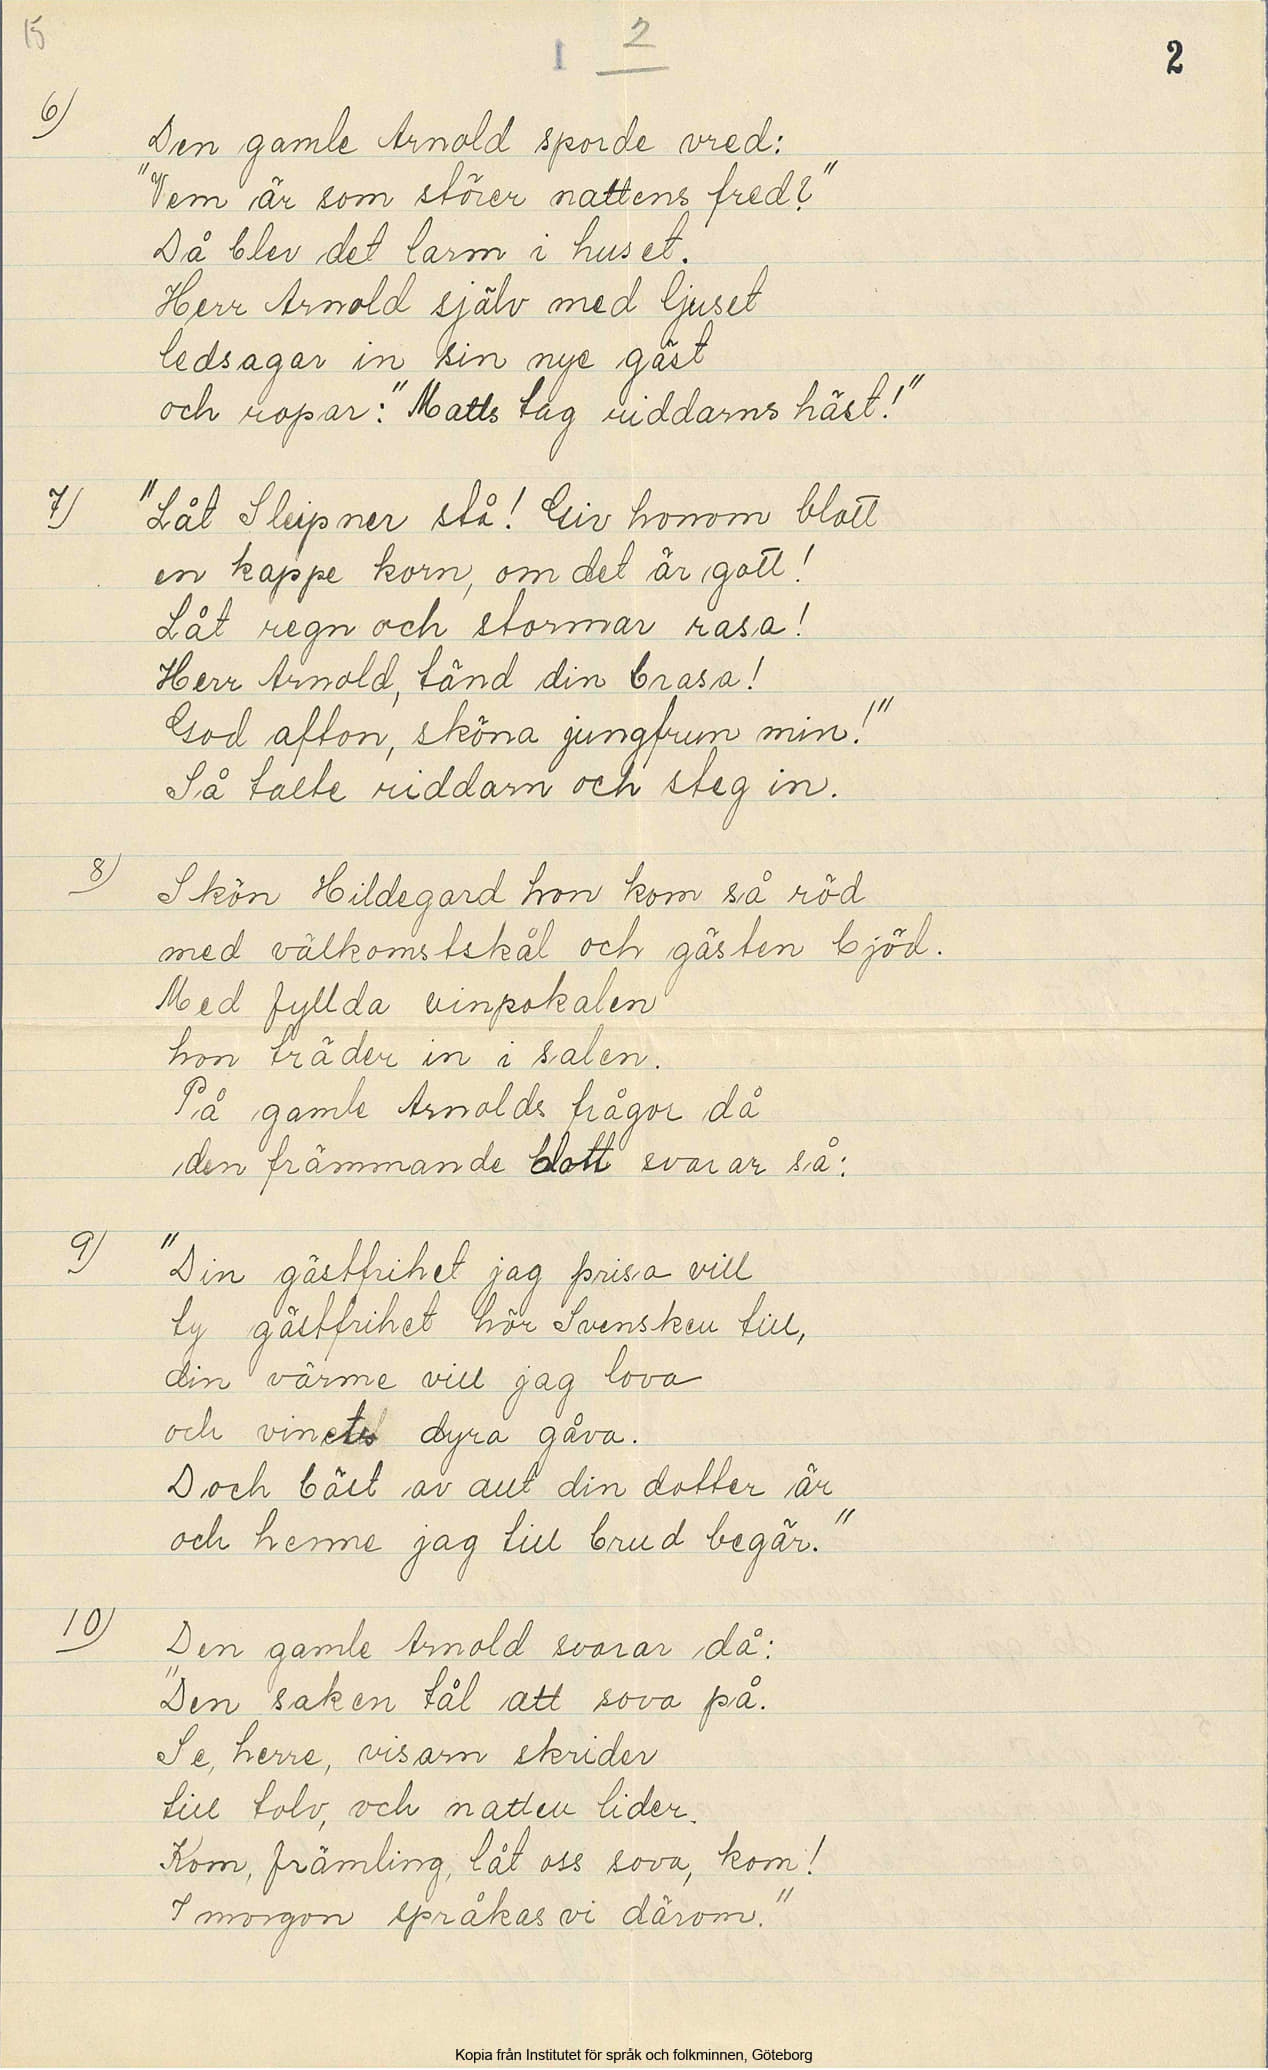 15
1 2
2
6)
Den gamle Arnold sporde vred:
"Vem är som störer nattens fred?"
Då blev det larm i huset.
Herr Arnold själv med ljuset
ledsagar in sin nye gäst
och ropar: "Matts tag riddarns häst!"
7)
"Låt Sleipner stå! Giv honom blott
en kappe korn, om det är gott!
Låt regn och stormar rasa!
Herr Arnold, tänd din brasa!
God afton, sköna jungfrun min!"
Så talte riddarn och steg in.
8)
Skön Hildegard hon kom så röd
med välkomstskål och gästen bjöd.
Med fyllda vinpokalen
hon träder in i salen.
På gamle Arnolds frågor då
den främmande blott svarar så:
9)
"Din gästfrihet jag prisa vill
ty gästfrihet hör Svensken till,
din värme vill jag lova
och vinets dyra gåva.
Doch bäst av allt din dotter är
och henne jag till brud begär."
10)
Den gamle Arnold svarar då:
"Den saken tål att sova på.
Se, herre, visarn skrider
till tolv, och natten lider.
Kom, främling, låt oss sova, kom!
I morgon språkas vi därom."
Kopia från Institutet för språk och folkminnen, Göteborg